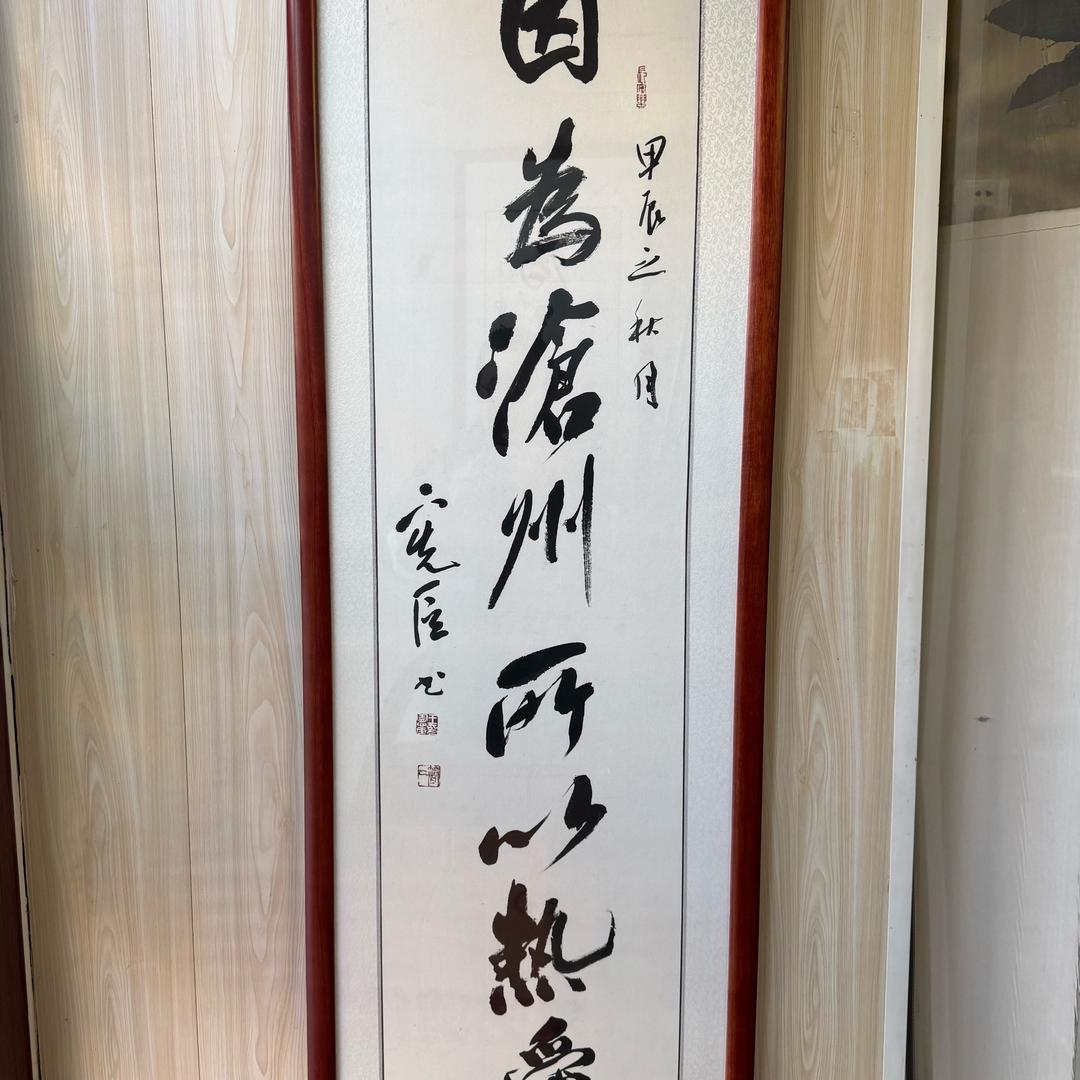 甲辰之秋月
因为滄州所以热愛
宪臣书